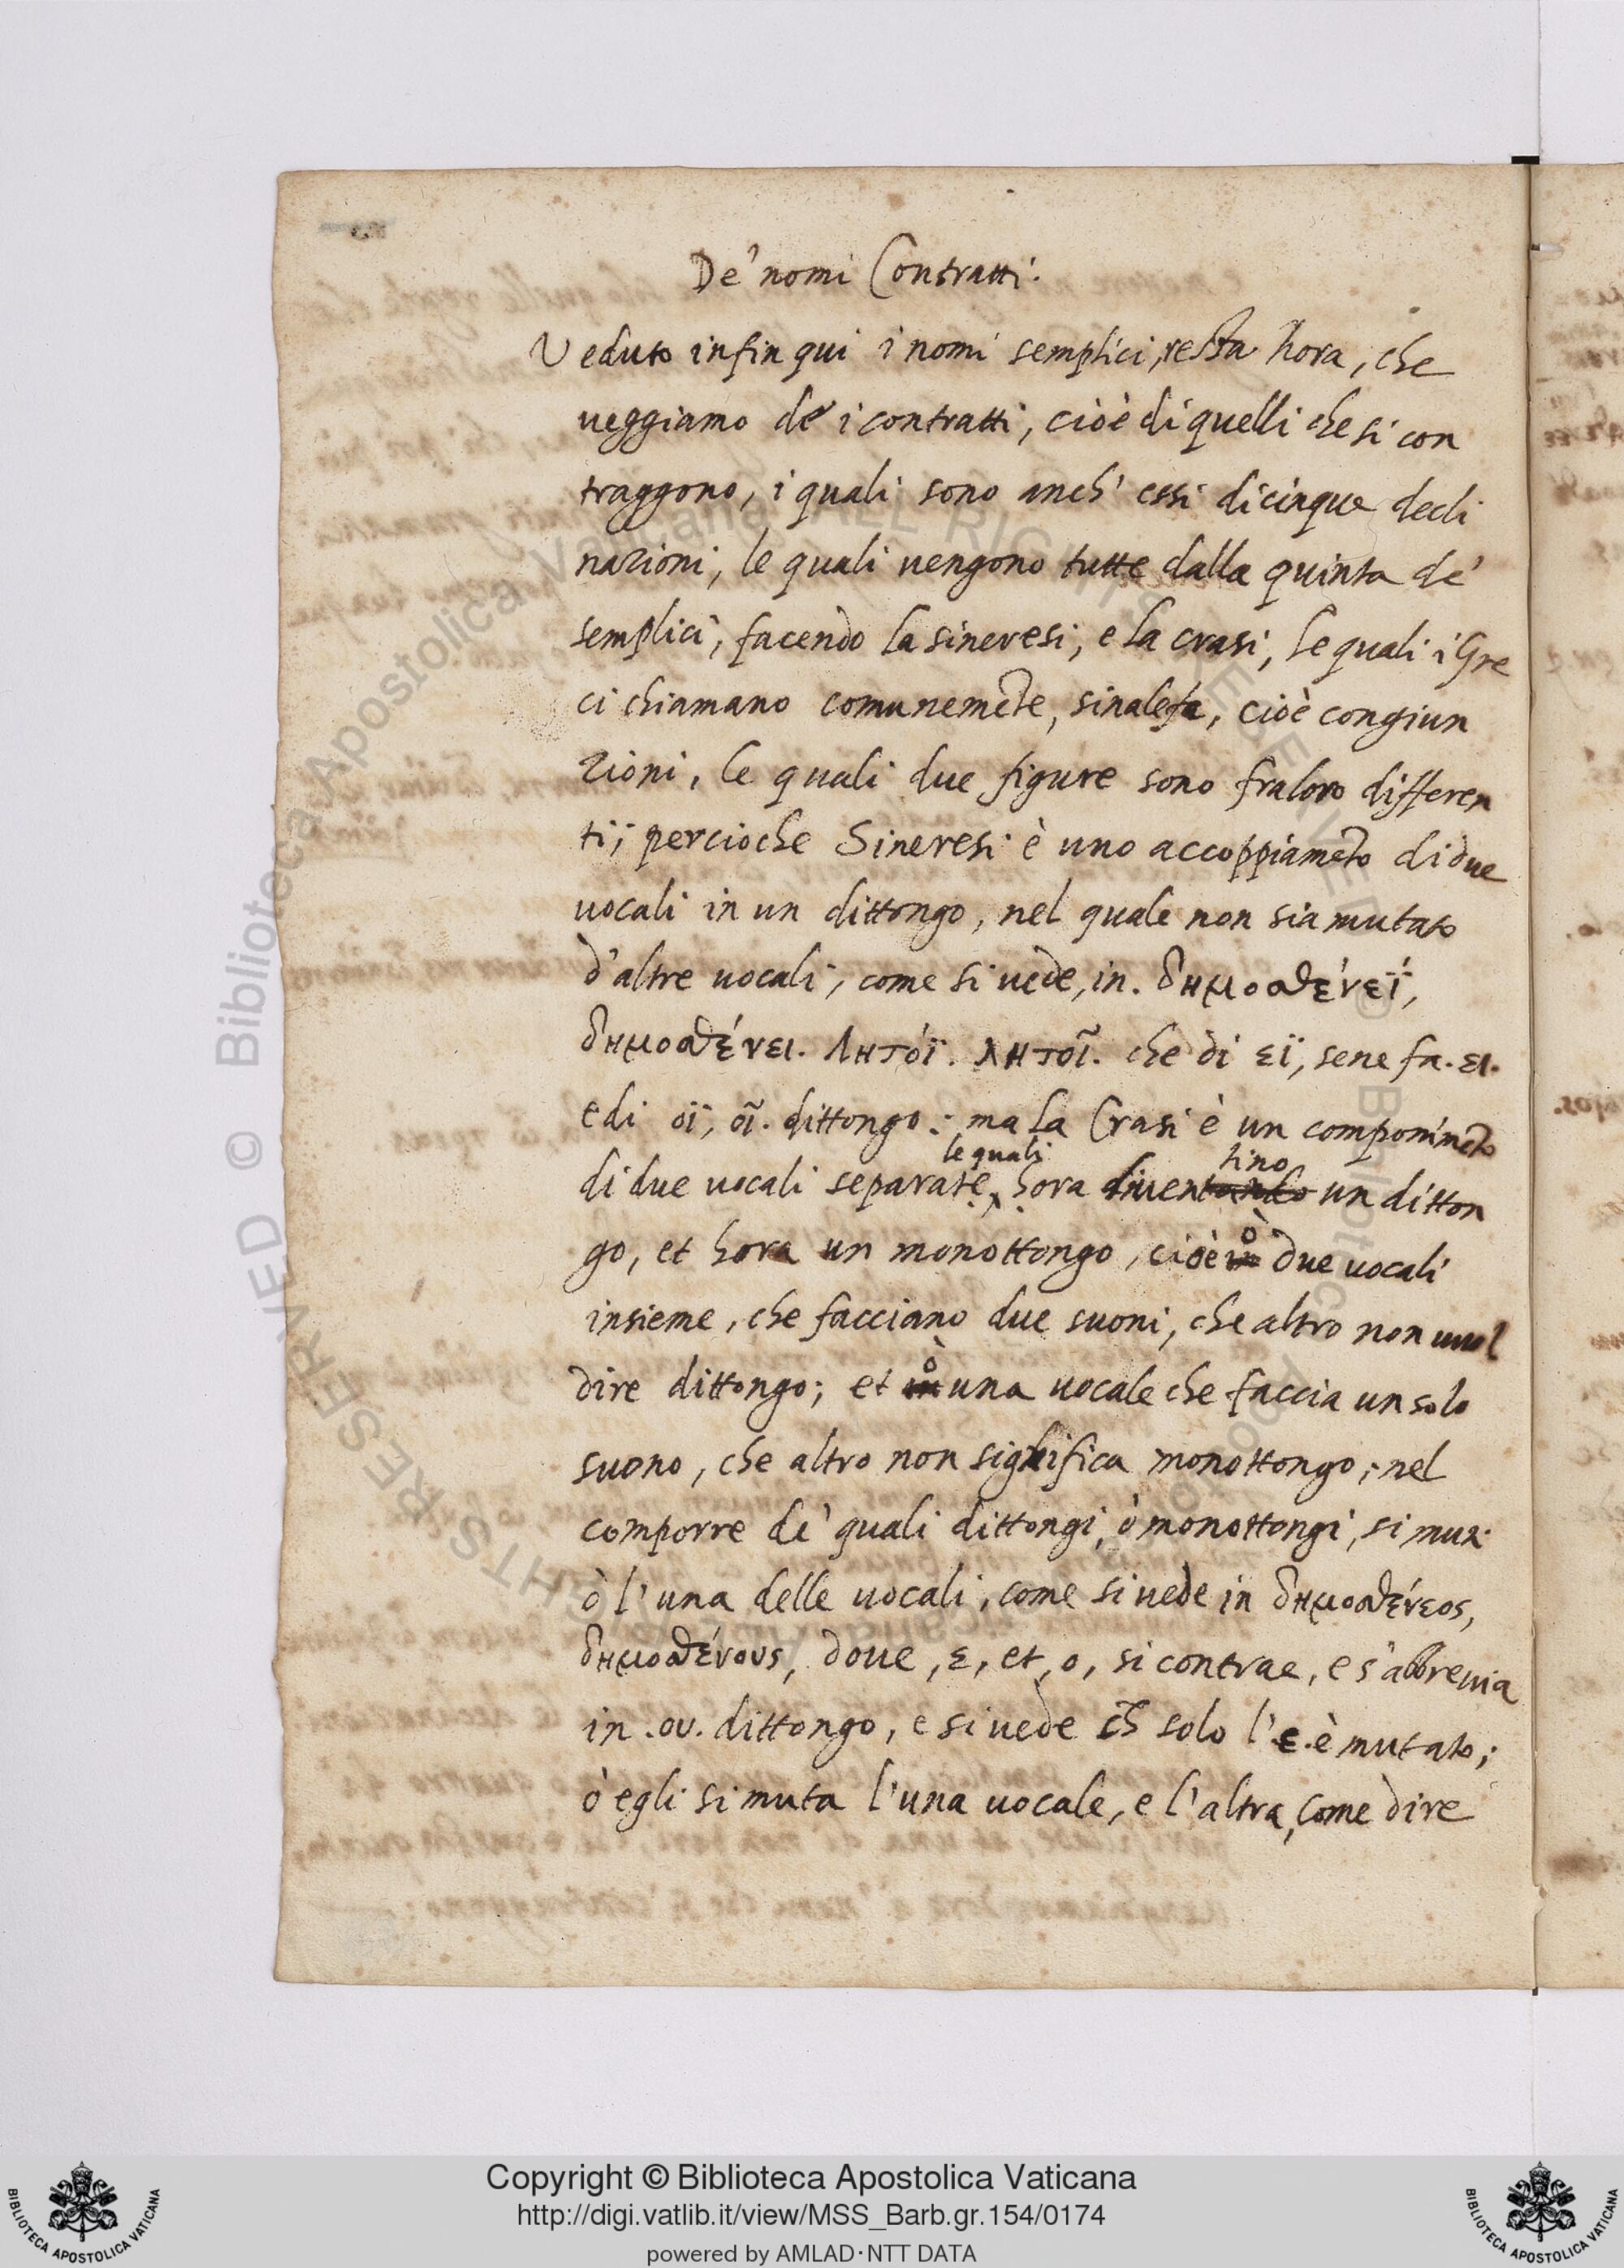 De' nomi Contratti.
Veduto infin qui i nomi semplici, resta hora, che
ueggiamo de i contratti, cioè di quelli che si con
traggono, i quali sono anch' essi di cinque decli
nazioni, le quali uengono tutte dalla quinta de'
semplici, facendo la sineresi, e la crasi, le quali i Gre
ci chiamano comunemẽte, sinalefa, cioè congiun
zioni, le quali due figure sono fra loro differen
ti; percioche Sineresi è uno accoppiamẽto di due
uocali in un dittongo, nel quale non sia mutato
d'altre uocali, come si uede, in. δημοσθένεϊ,
δημοσθένει. Λητόϊ. λητοῖ. che di εϊ, se ne fa. ει.
e di οϊ, οῖ. dittongo: ma la Crasi è un componimẽto
le quali tino
di due uocali separate, hora diuentando un ditton
go, et hora un monottongo, cioè ò due uocali
insieme, che facciano due suoni, che altro non uuol
dire dittongo; et ò una uocale che faccia un solo
suono, che altro non significa monottongo; nel
comporre de' quali dittongi, ò monottongi, si muta
ò l'una delle uocali, come si uede in δημοσθένεος,
δημοσθένους, doue, ε, et, ο, si contrae, e s'abbreuia
in .ου. dittongo, e si uede ch̃ solo l'.ε. è mutato;
ò egli si muta l'una uocale, e l'altra, come dire
Copyright © Biblioteca Apostolica Vaticana
http://digi.vatlib.it/view/MSS_Barb.gr.154/0174
powered by AMLAD·NTT DATA
BIBLIOTECA APOSTOLICA VATICANA
BIBLIOTECA APOSTOLICA VATICANA